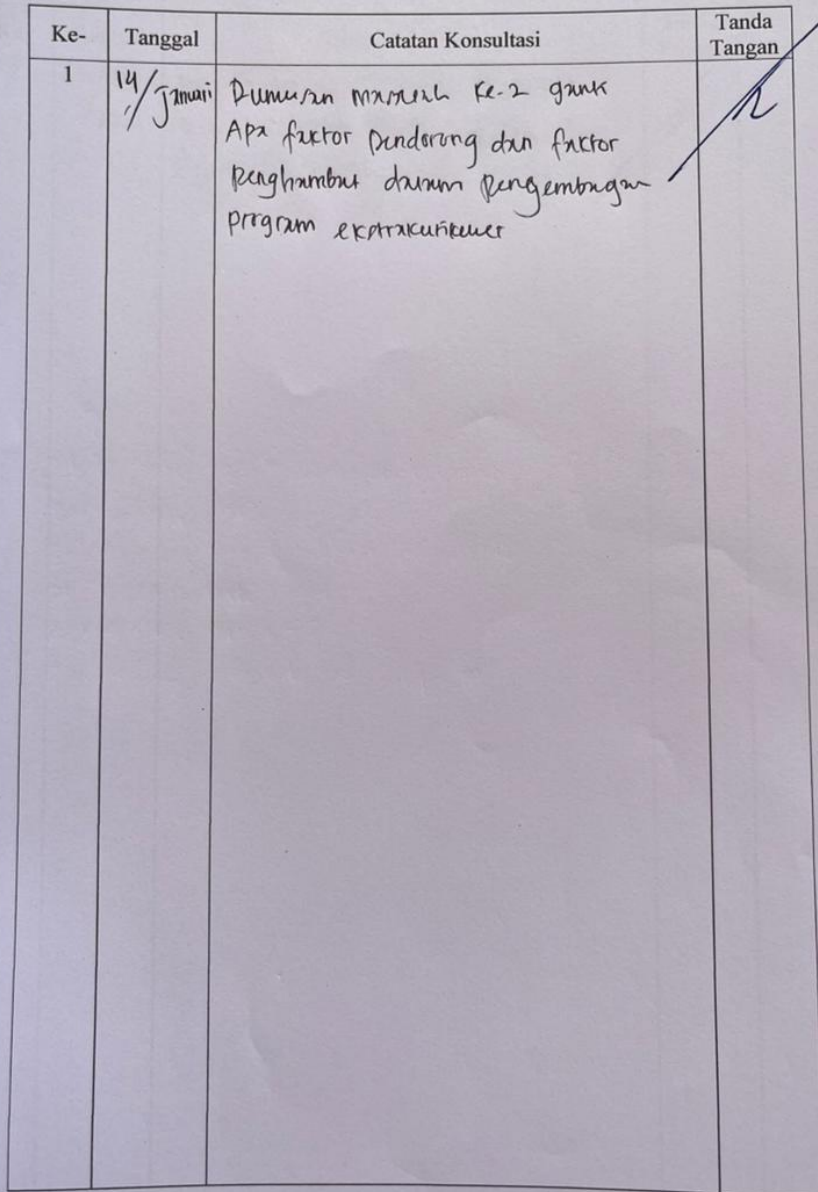 Ke- Tanggal Catatan Konsultasi Tanda Tangan
1 14/ Januari Rumusan masalah ke-2 ganti
Apa faktor pendorong dan faktor
penghambat dalam pengembangan
program ekstrakurikuler